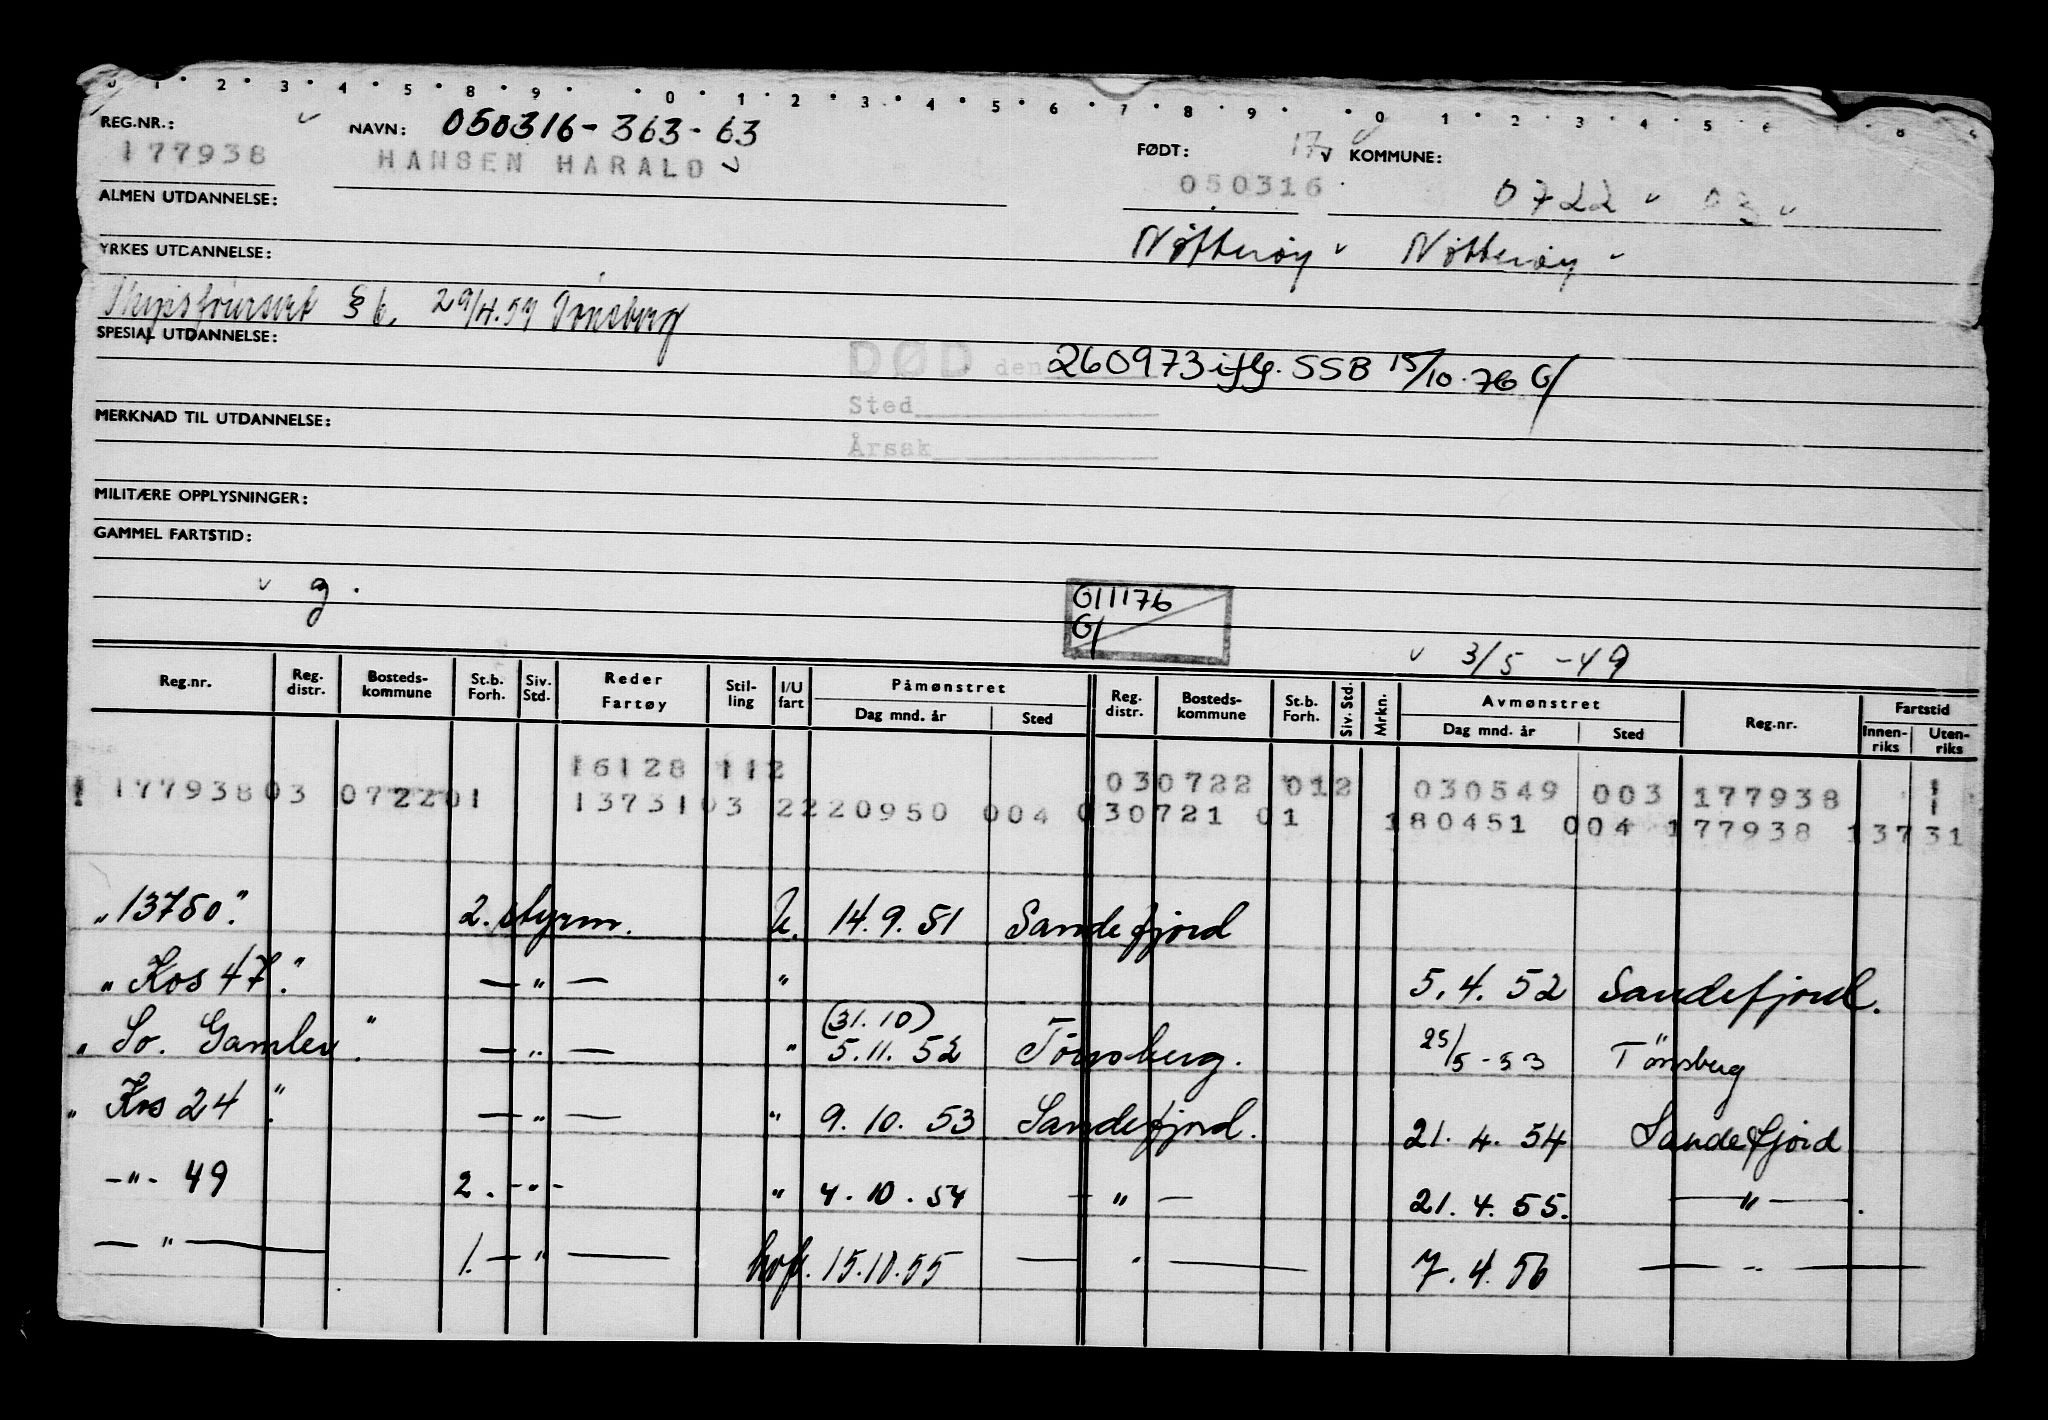 0 1 2 3 4 5 8 9 0 1 2 3 4 5 6 7 8 9 0 1 2 3 4 5 6
REG.NR.: NAVN: 050316-363-63 FØDT: 17 KOMMUNE:
177938 HANSEN HARALD 050316 0722
ALMEN UTDANNELSE:
Nøtterøy Nøtterøy
YRKES UTDANNELSE:
§ 6, 29/4.59 Tønsberg
SPESIAL UTDANNELSE:
DØD den 260973 iflg. SSB 15/10.76 G/
Sted
MERKNAD TIL UTDANNELSE:
Årsak
MILITÆRE OPPLYSNINGER:
GAMMEL FARTSTID:
g.
G11176
G/
3/5 -49
Reg.nr. Reg. distr. Bosteds-kommune St.b. Forh. Siv. Std. Reder Fartøy Stil-ling I/U fart Påmønstret Dag mnd. år Sted Reg. distr. Bosteds-kommune St.b. Forh. Siv. Std. Mrkn. Avmønstret Dag mnd. år Sted Reg.nr. Fartstid Innen-riks Uten-riks
16128 112 030722 012 030549 003 177938
177938 03 0722 01 13731 03 2 220950 004 030721 01 180451 004 177938 13731
"13750". 2. styrm. U. 14.9.51 Sandefjord
"Kos 47". — " — " 5.4.52 Sandefjord.
(31.10)
"So. Gamlev". — " — " 5.11.52 Tønsberg. 25/5-53 Tønsberg
"Kos 24". — " — " 9.10.53 Sandefjord. 21.4.54 Sandefjord
-"- 49 2. -"- " 4.10.54 — " — 21.4.55. — " —.
— " — 1. — " — hvf. 15.10.55 — " — 7.4.56 — " —